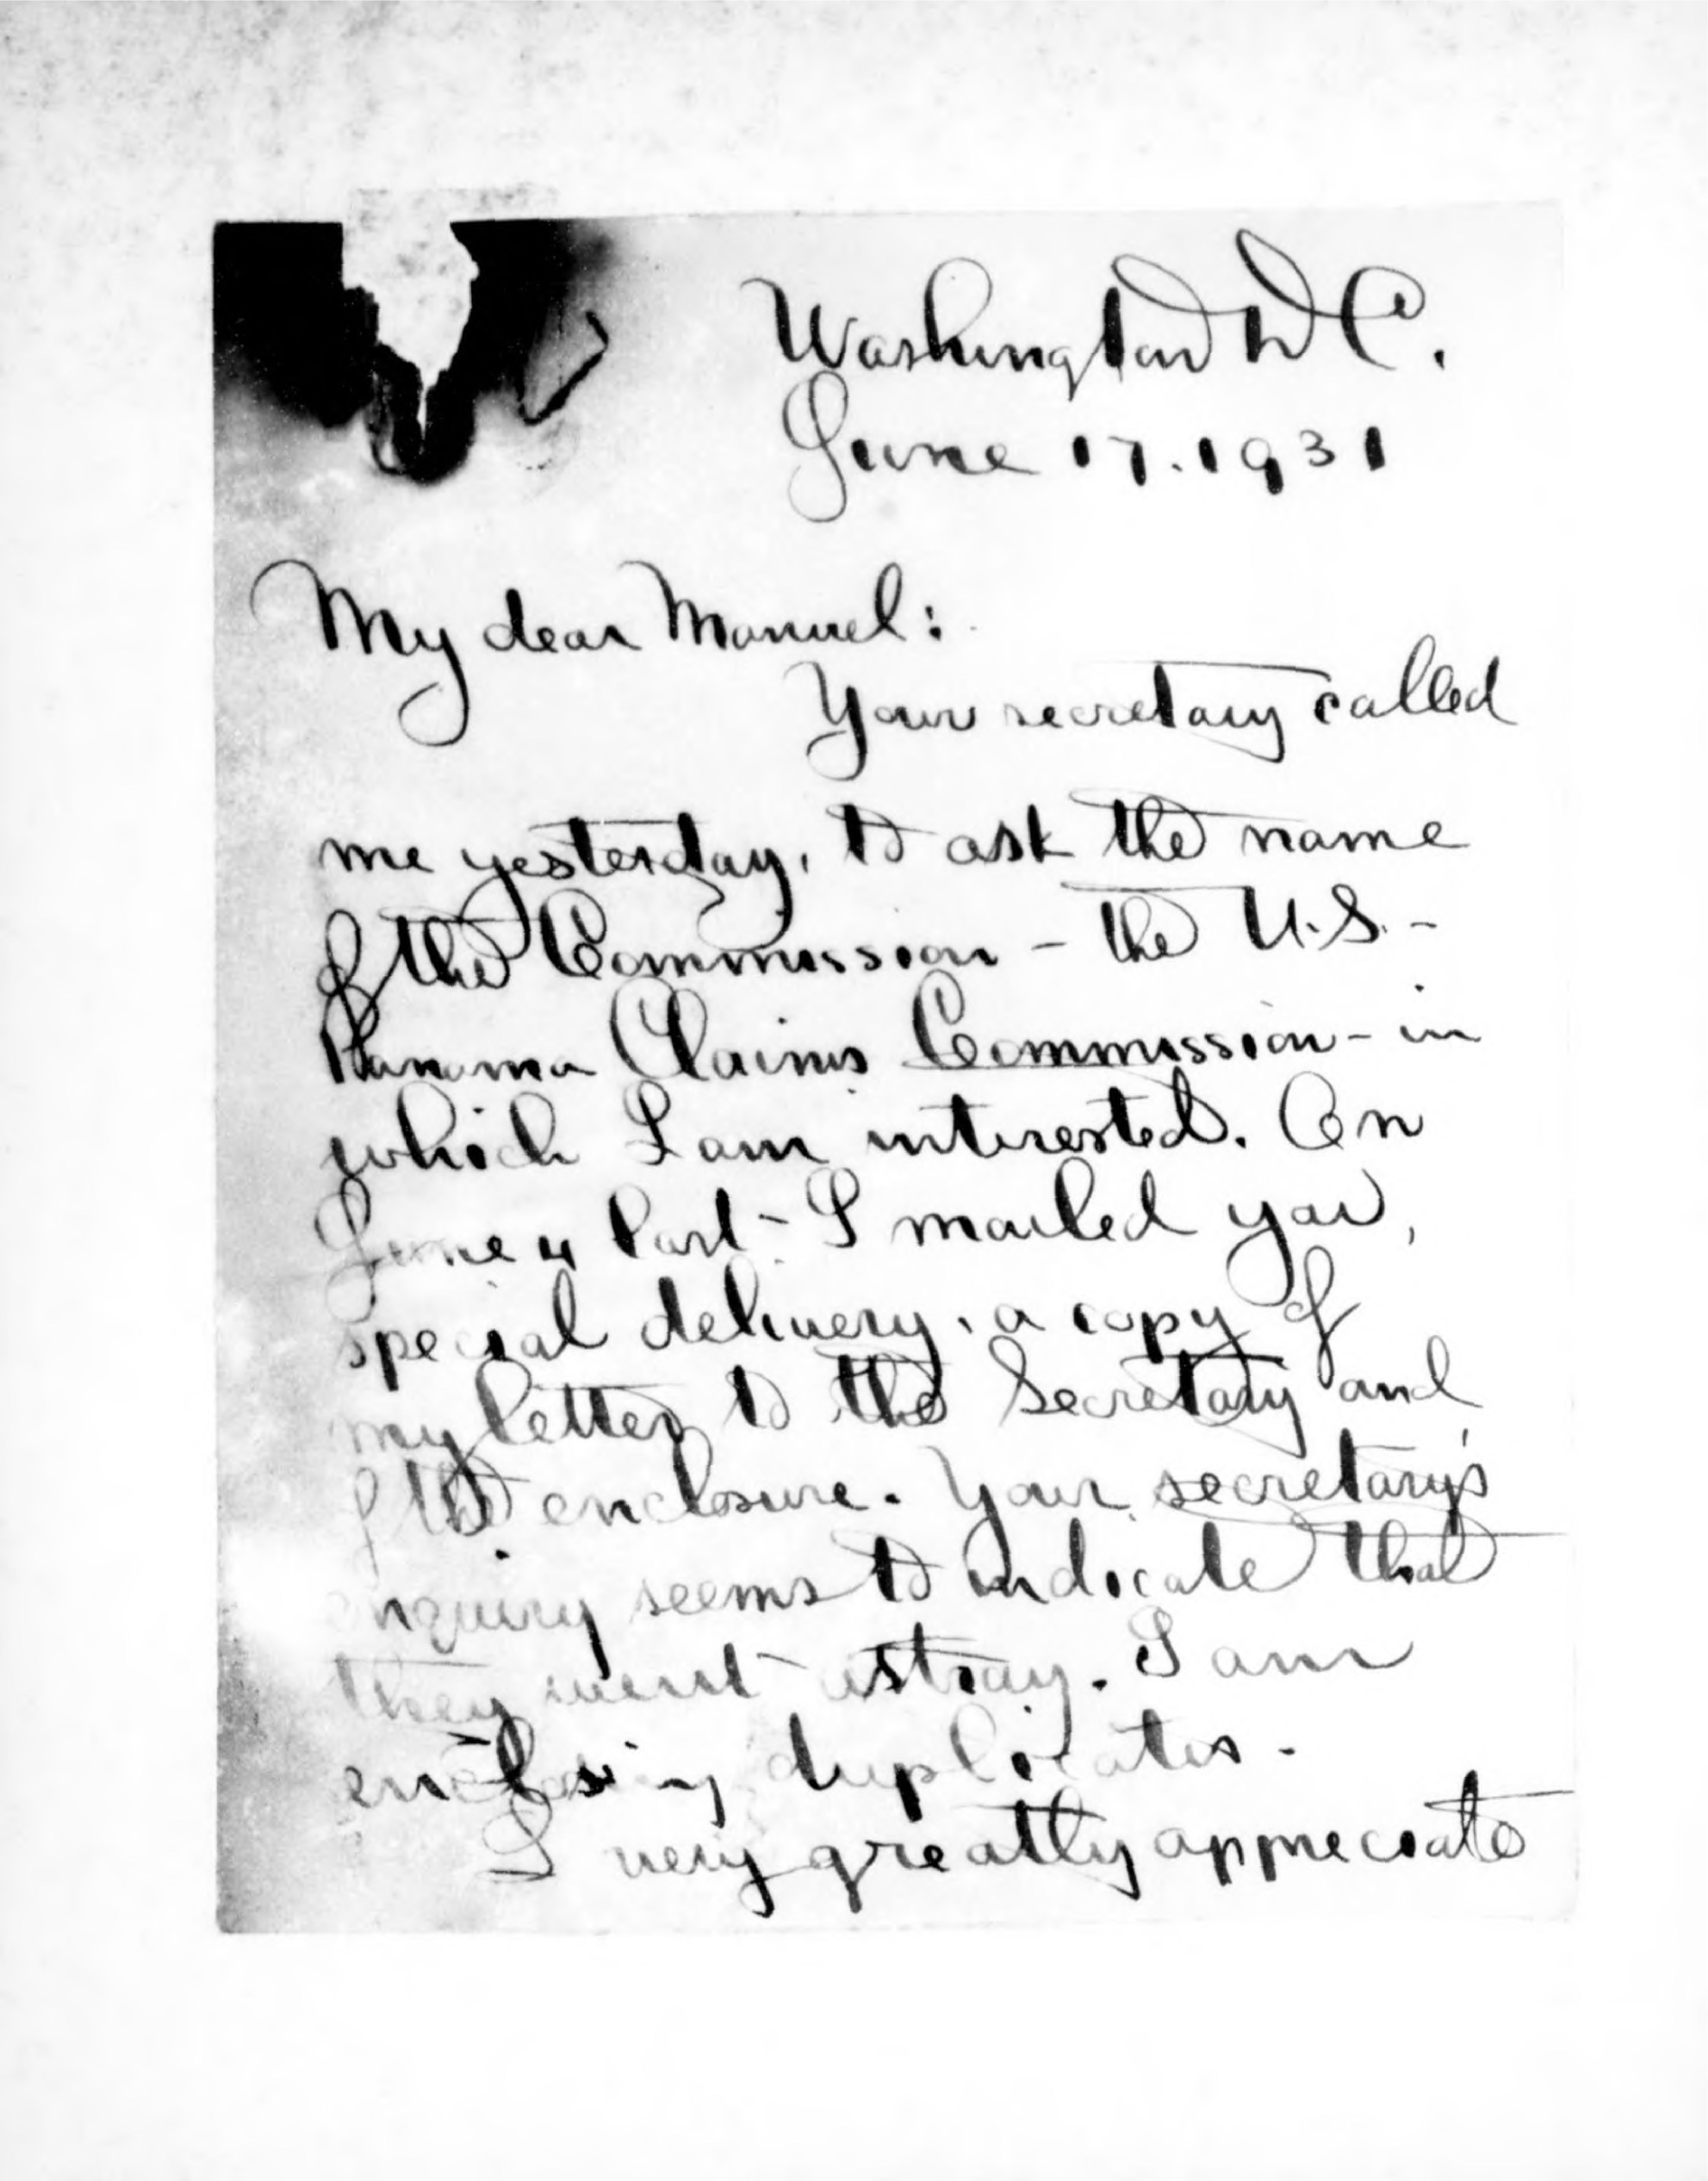 Washington D C.
June 17. 1931
My dear Manuel:
Your secretary called
me yesterday, to ask the name
of the Commission - the U.S. -
Panama Claims Commission - in
which I am interested. On
June 4 last - I mailed you,
special delivery, a copy of
my letter to the Secretary and
of the enclosure. Your secretary's
enquiry seems to indicate that
they went astray. I am
enclosing duplicates.
I very greatly appreciate